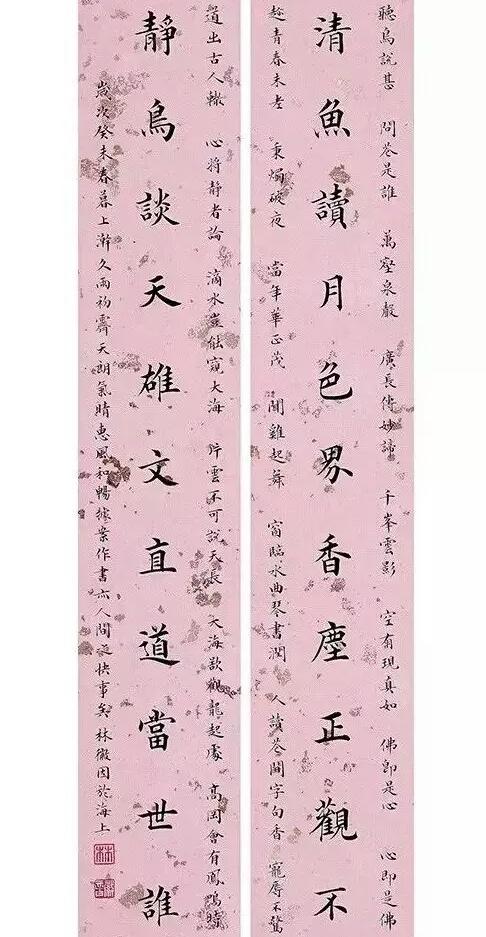 聽鳥說甚 問花是誰 萬壑泉聲 廣長傳妙諦 千峯雲影 空有現真如 佛即是心 心即是佛
清魚讀月色界香塵正觀不
趁青春未老 秉燭破夜 當年華正茂 聞雞起舞 窗臨水曲琴書潤 人讀花間字句香 寵辱不驚
道出古人轍 心將靜者論 滴水豈能窺大海 片雲不可說天長 大海欲觀龍起處 高岡會有鳳鳴時
靜鳥談天雄文直道當世誰
歲次癸未春暮上澣久雨初霽天朗氣晴惠風和暢據案作書亦人間之快事矣林徽因於海上